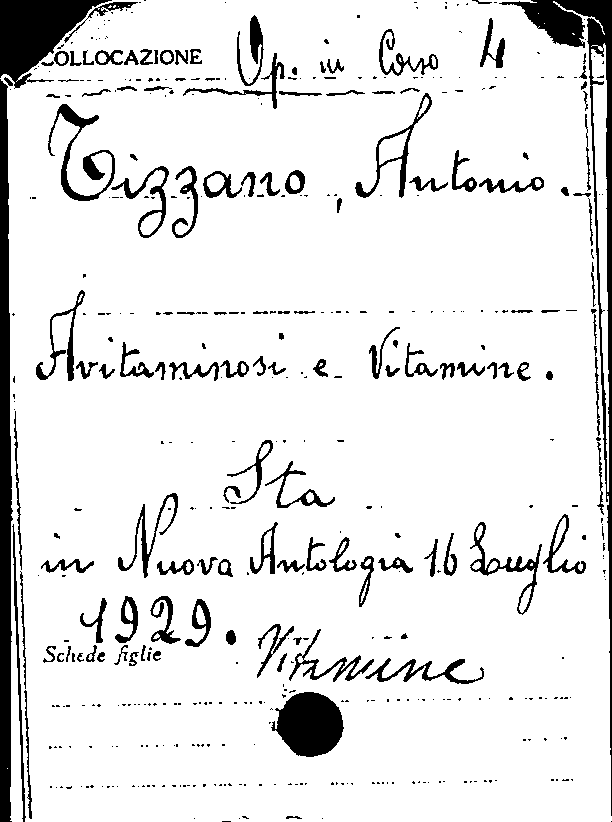 COLLOCAZIONE Op. in Corso 4
Tizzano, Antonio.
Avitaminosi e Vitamine.
Sta
in Nuova Antologia 16 Luglio
1929.
Schede figlie Vitamine